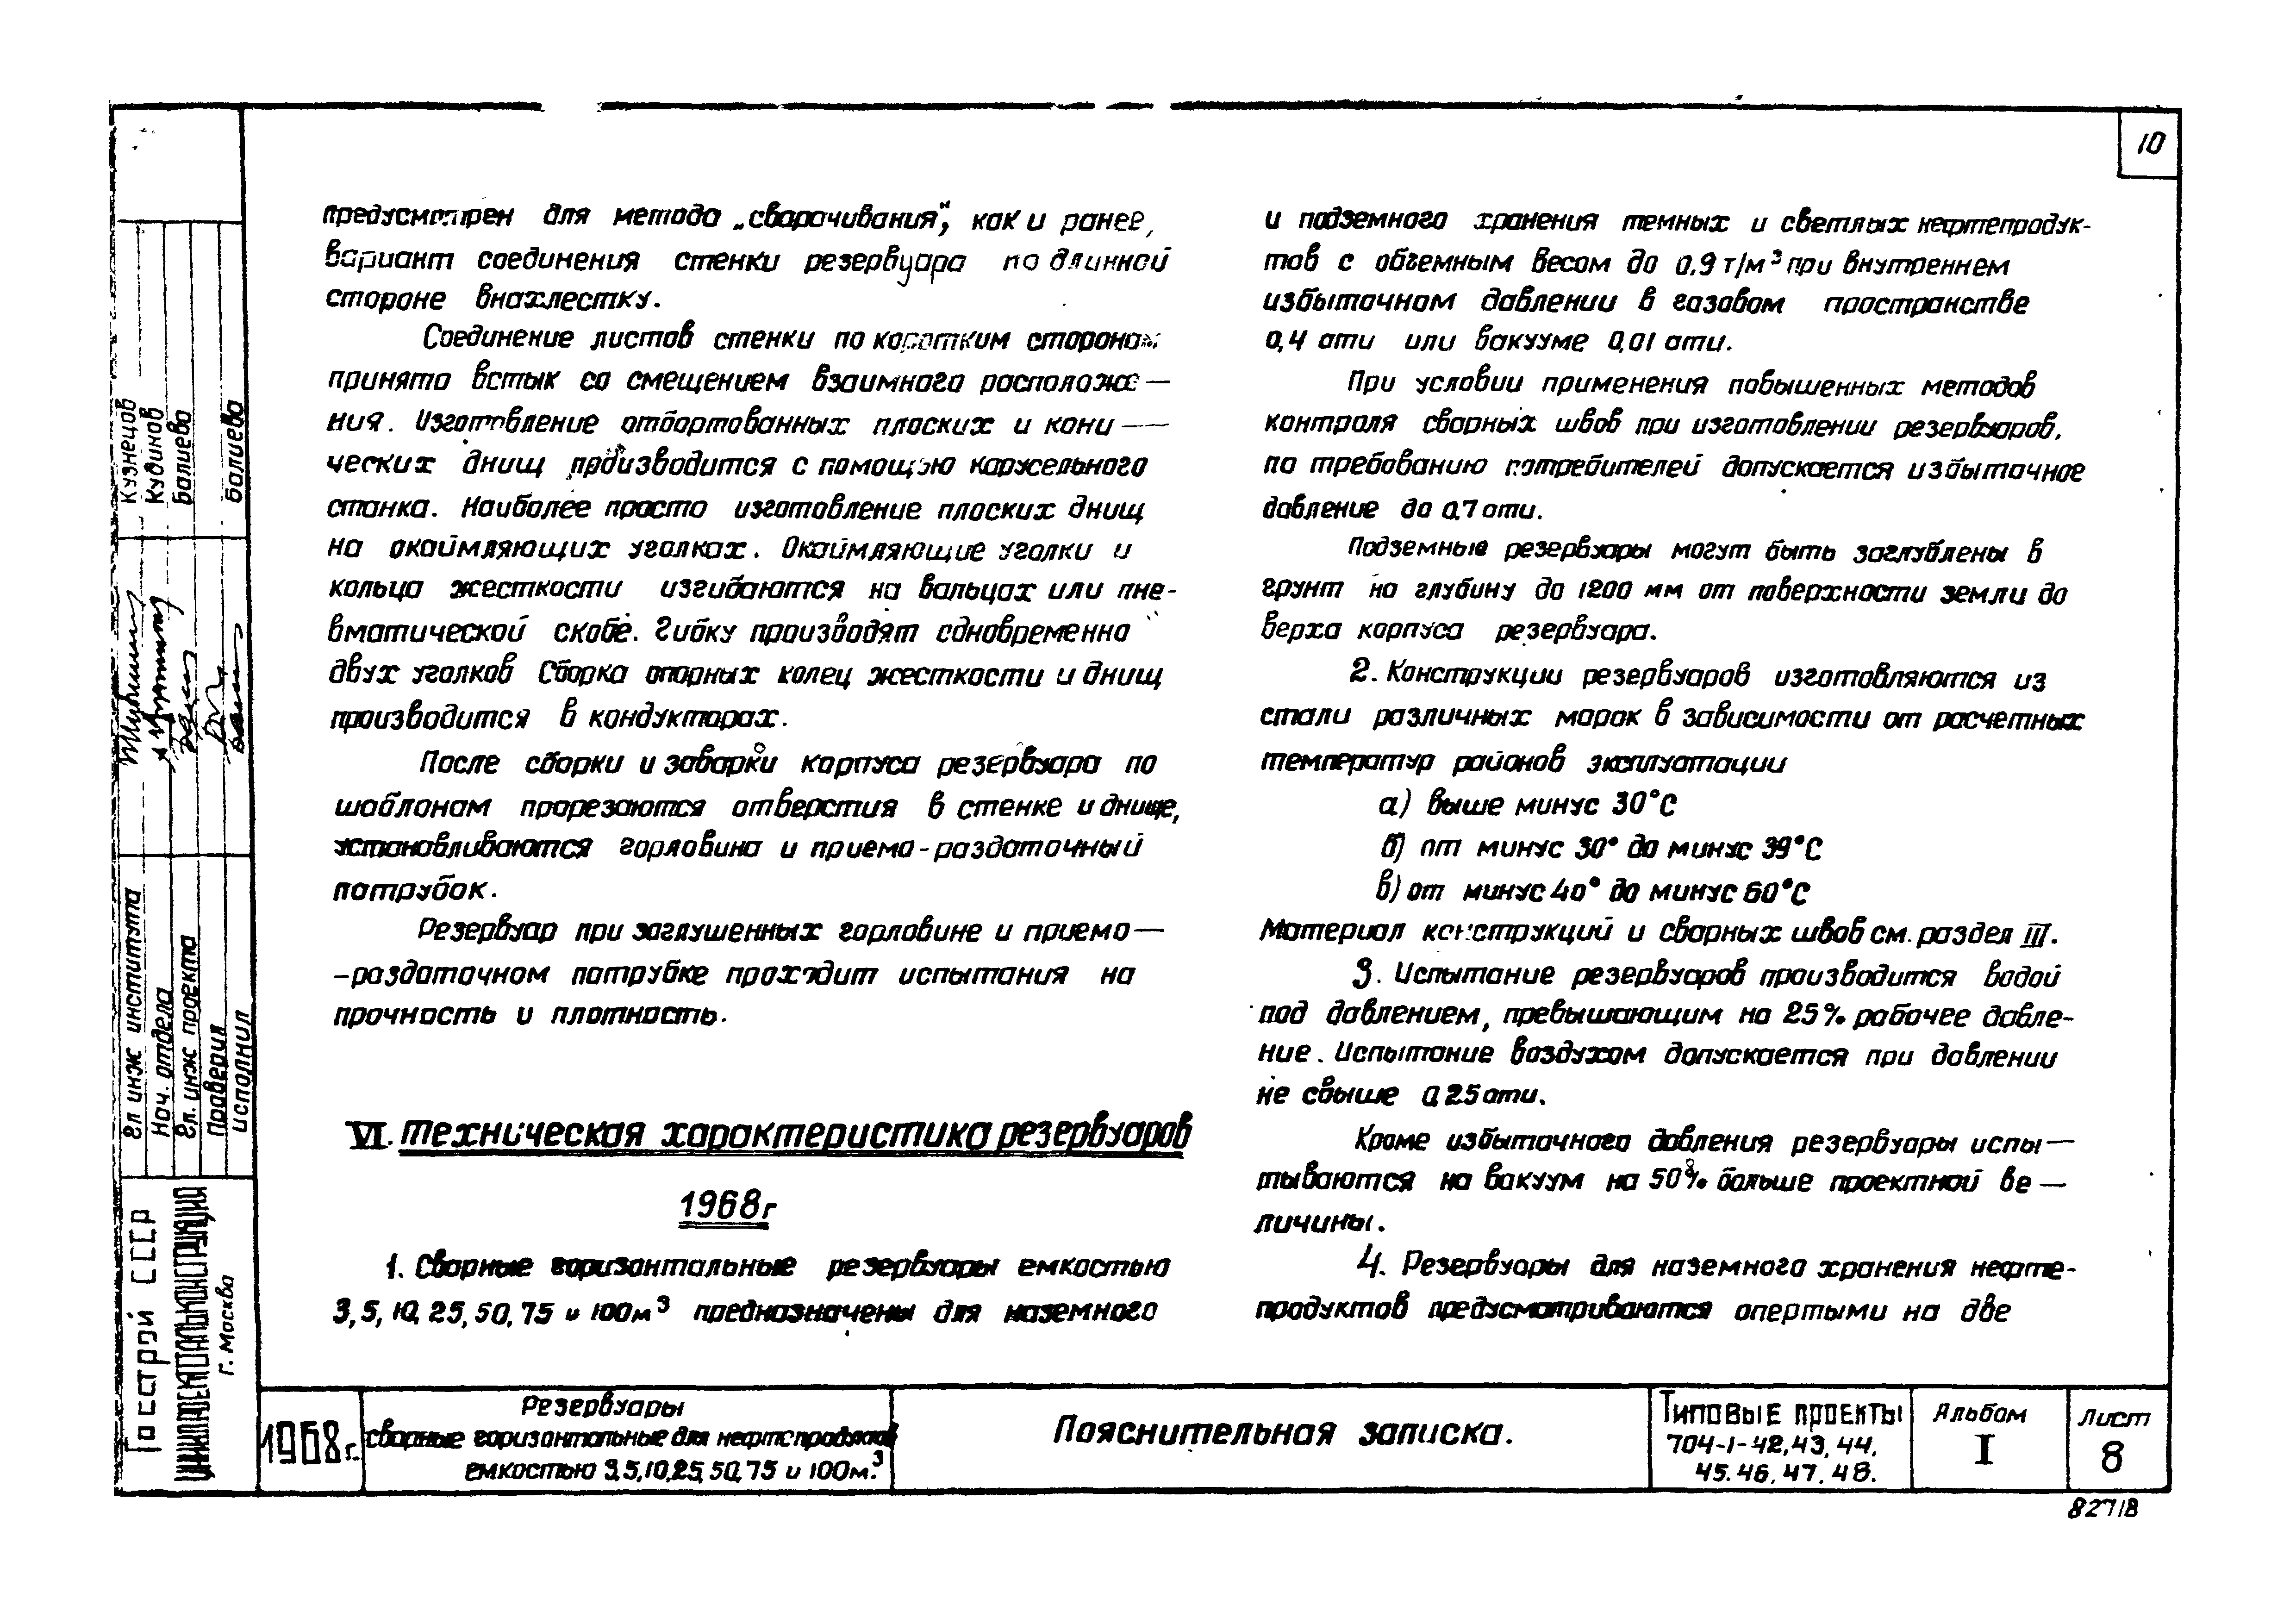 10
предусмотрен для метода „сворачивания", как и ранее,
вариант соединения стенки резервуара по длинной
стороне внахлестку.
Соединение листов стенки по коротким сторонам
принято встык со смещением взаимного расположе—
ния. Изготовление отбортованных плоских и кони—
ческих днищ производится с помощью карусельного
станка. Наиболее просто изготовление плоских днищ
на окаймляющих уголках. Окаймляющие уголки и
кольца жесткости изгибаются на вальцах или пне-
вматической скобе. Гибку производят одновременно
двух уголков Сборка опорных колец жесткости и днищ
производится в кондукторах.
После сборки и заварки корпуса резервуара по
шаблонам прорезаются отверстия в стенке и днище,
устанавливаются горловина и приемо-раздаточный
патрубок.
Резервуар при заглушенных горловине и приемо—
-раздаточном патрубке проходит испытания на
прочность и плотность.
VI. Техническая характеристика резервуаров
1968г
1. Сварные горизонтальные резервуары емкостью
3, 5, 10, 25, 50, 75 и 100м³ предназначены для наземного
и подземного хранения темных и светлых нефтепродук-
тов с объемным весом до 0.9 т/м³ при внутреннем
избыточном давлении в газовом пространстве
0,4 ати или вакууме 0,01 ати.
При условии применения повышенных методов
контроля сварных швов при изготовлении резервуаров,
по требованию потребителей допускается избыточное
давление до 0.7 ати.
Подземные резервуары могут быть заглублены в
грунт на глубину до 1200 мм от поверхности земли до
верха корпуса резервуара.
2. Конструкции резервуаров изготовляются из
стали различных марок в зависимости от расчетных
температур районов эксплуатации
а) выше минус 30°С
б) от минус 30° до минус 39°С
в) от минус 40° до минус 60°С
Материал конструкций и сварных швов см. раздел III.
3. Испытание резервуаров производится водой
под давлением, превышающим на 25% рабочее давле-
ние. Испытание воздухом допускается при давлении
не свыше 0.25 ати.
Кроме избыточного давления резервуары испы—
тываются на вакуум на 50% больше проектной ве—
личины.
4. Резервуары для наземного хранения нефте-
продуктов предусматриваются опертыми на две
Гл инж института Кузнецов
Нач. отдела Кудинов
Гл. инж проекта Балиева
Проверил
исполнил Балиева
Госстрой СССР
ЦНИИПРОЕКТСТАЛЬКОНСТРУКЦИЯ
г. Москва
1968г.
Резервуары
сварные горизонтальные для нефтепродуктов
емкостью 3,5,10,25,50,75 и 100м.³
Пояснительная записка.
Типовые проекты
704-1-42,43,44,
45.46,47.48.
Альбом
I
Лист
8
82718